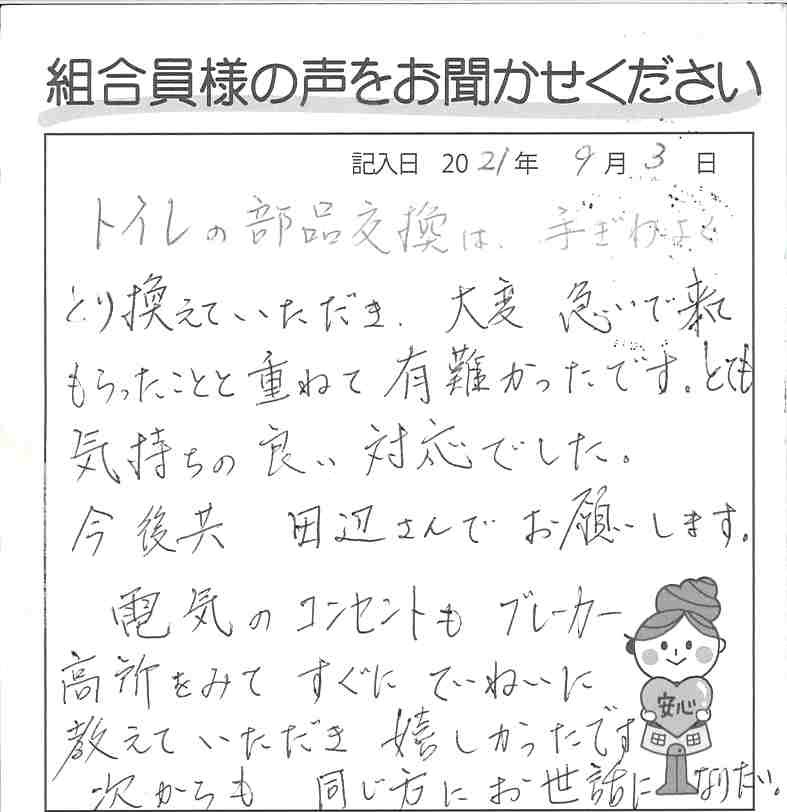 組合員様の声をお聞かせください
記入日 2021年 9月 3日
トイレの部品交換は、手ぎわよく
とり換えていただき、大変 急いで来て
もらったことと重ねて有難かったです。とても
気持ちの良い対応でした。
今後共 田辺さんでお願いします。
電気のコンセントも ブレーカー
高所をみて すぐに ていねいに
教えていただき 嬉しかったです
次からも 同じ方にお世話になりたい。
安心